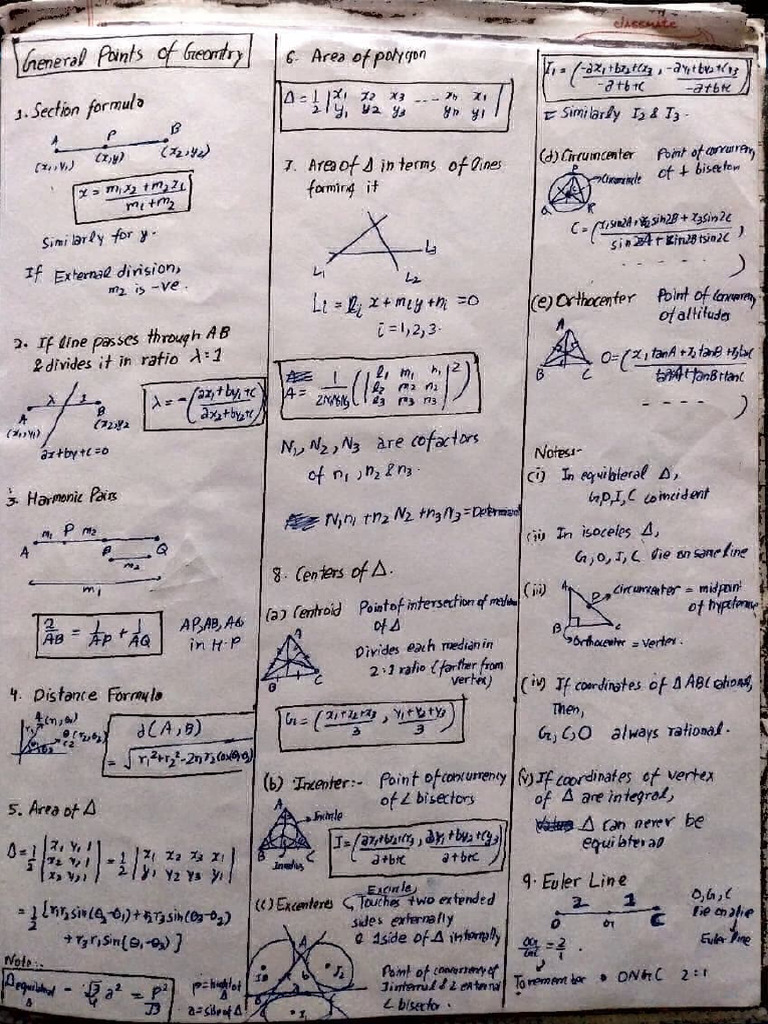 classmate
General Points of Geometry
1. Section formula
A P B
(x₁,y₁) (x,y) (x₂,y₂)
x = m₁x₂ + m₂x₁ / m₁+m₂
Similarly for y.
If External division,
m₂ is -ve.
2. If line passes through AB
& divides it in ratio λ:1
λ 1
A B
(x₁,y₁) (x₂,y₂
ax+by+c=0
λ = -(ax₁+by₁+c / ax₂+by₂+c)
3. Harmonic Pairs
A m₁ P m₂ B Q
m₂
m₁
2/AB = 1/AP + 1/AQ
AP, AB, AQ
in H.P
4. Distance Formula
A(r₁,θ₁)
B(r₂,θ₂)
d(A,B)
= √r₁²+r₂²-2r₁r₂cos(θ₁-θ₂)
5. Area of Δ
Δ = 1/2 |x₁ y₁ 1 x₂ y₂ 1 x₃ y₃ 1| = 1/2 |x₁ x₂ x₃ x₁ y₁ y₂ y₃ y₁|
= 1/2 [r₁r₂sin(θ₂-θ₁)+r₂r₃sin(θ₃-θ₂)
+r₃r₁sin(θ₁-θ₃)]
Note:-
Δ equilateral Δ = √3/4 a² = P²/√3
p = height of Δ
a = side of Δ
6. Area of polygon
Δ = 1/2 |x₁ x₂ x₃ --- xₙ x₁ y₁ y₂ y₃ yₙ y₁|
7. Area of Δ in terms of lines
forming it
L₁ L₂ L₃
Lᵢ = lᵢx + mᵢy + nᵢ = 0
i = 1,2,3.
A = 1/2N₁N₂N₃ (|l₁ m₁ n₁ l₂ m₂ n₂ l₃ m₃ n₃|²)
N₁, N₂, N₃ are cofactors
of n₁, n₂ & n₃.
N₁n₁ + n₂N₂ + n₃N₃ = Determinant
8. Centers of Δ.
(a) Centroid Point of intersection of median
of Δ
A B C
Divides each median in
2:1 ratio (farther from
vertex)
G = (x₁+x₂+x₃/3, y₁+y₂+y₃/3)
(b) Incenter:- Point of concurrency
of ∠ bisectors
A B C
Incircle
Inradius
I = (ax₁+bx₂+cx₃/a+b+c, ay₁+by₂+cy₃/a+b+c)
(c) Excenters Excircle
Touches two extended
sides externally
& 1 side of Δ internally
Point of concurrency of
1 internal & 2 external
∠ bisector.
I₁ = (-ax₁+bx₂+cx₃/-a+b+c, -ay₁+by₂+cy₃/-a+b+c)
Similarly I₂ & I₃.
(d) Circumcenter Point of concurrency
of ⊥ bisectors
Circumcircle
C = (x₁sin2A+x₂sin2B+x₃sin2C / sin2A+sin2B+sin2C
- - - - - )
(e) Orthocenter Point of concurrency
of altitudes
A B C
O = (x₁tanA+x₂tanB+x₃tanC / tanA+tanB+tanC
- - - - )
Notes:-
(i) In equilateral Δ,
G,O,I,C coincident
(ii) In isoceles Δ,
G,O,I,C lie on same line
(iii) A P B C
circumcenter = midpoint
of hypotenuse
Orthocenter = vertex.
(iv) If coordinates of Δ ABC rational,
Then,
G,C,O always rational.
(v) If coordinates of vertex
of Δ are integral,
Δ can never be
equilateral
9. Euler Line
2 1
O G C
O,G,C
lie on a line
Euler line
OG/GC = 2/1.
To remember • ONGC 2:1